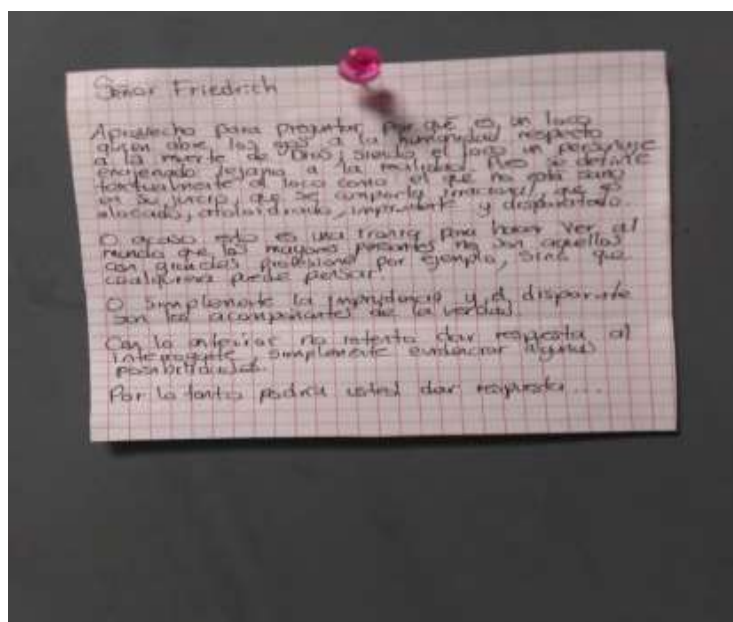 Señor Friedrich
Aprovecho para preguntar por qué es un loco
quien abre los ojos a la humanidad respecto
a la muerte de Dios, siendo el loco un personaje
enajenado lejano a la realidad. Pues se define
textualmente al loco como el que no está sano
en su juicio, que se comporta irracional, que es
alocado, atolondrado, imprudente y disparatado.
O acaso esto es una ironía para hacer ver al
mundo que los mayores pensantes no son aquellos
con grandes profesional por ejemplo, sino que
cualquiera puede pensar.
O simplemente la imprudencia y el disparate
son los acompañantes de la verdad.
Con lo anterior no intento dar respuesta al
interrogante, simplemente evidenciar algunas
posibilidades.
Por lo tanto podría usted dar respuesta...